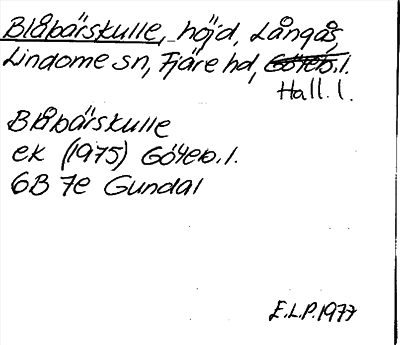 Blåbärskulle, höjd, Långås,
Lindome sn, Fjäre hd, Göteb.l.
Hall. l.
Blåbärskulle
ek (1975) Göteb.l.
6B 7e Gundal
E.L.P. 1977